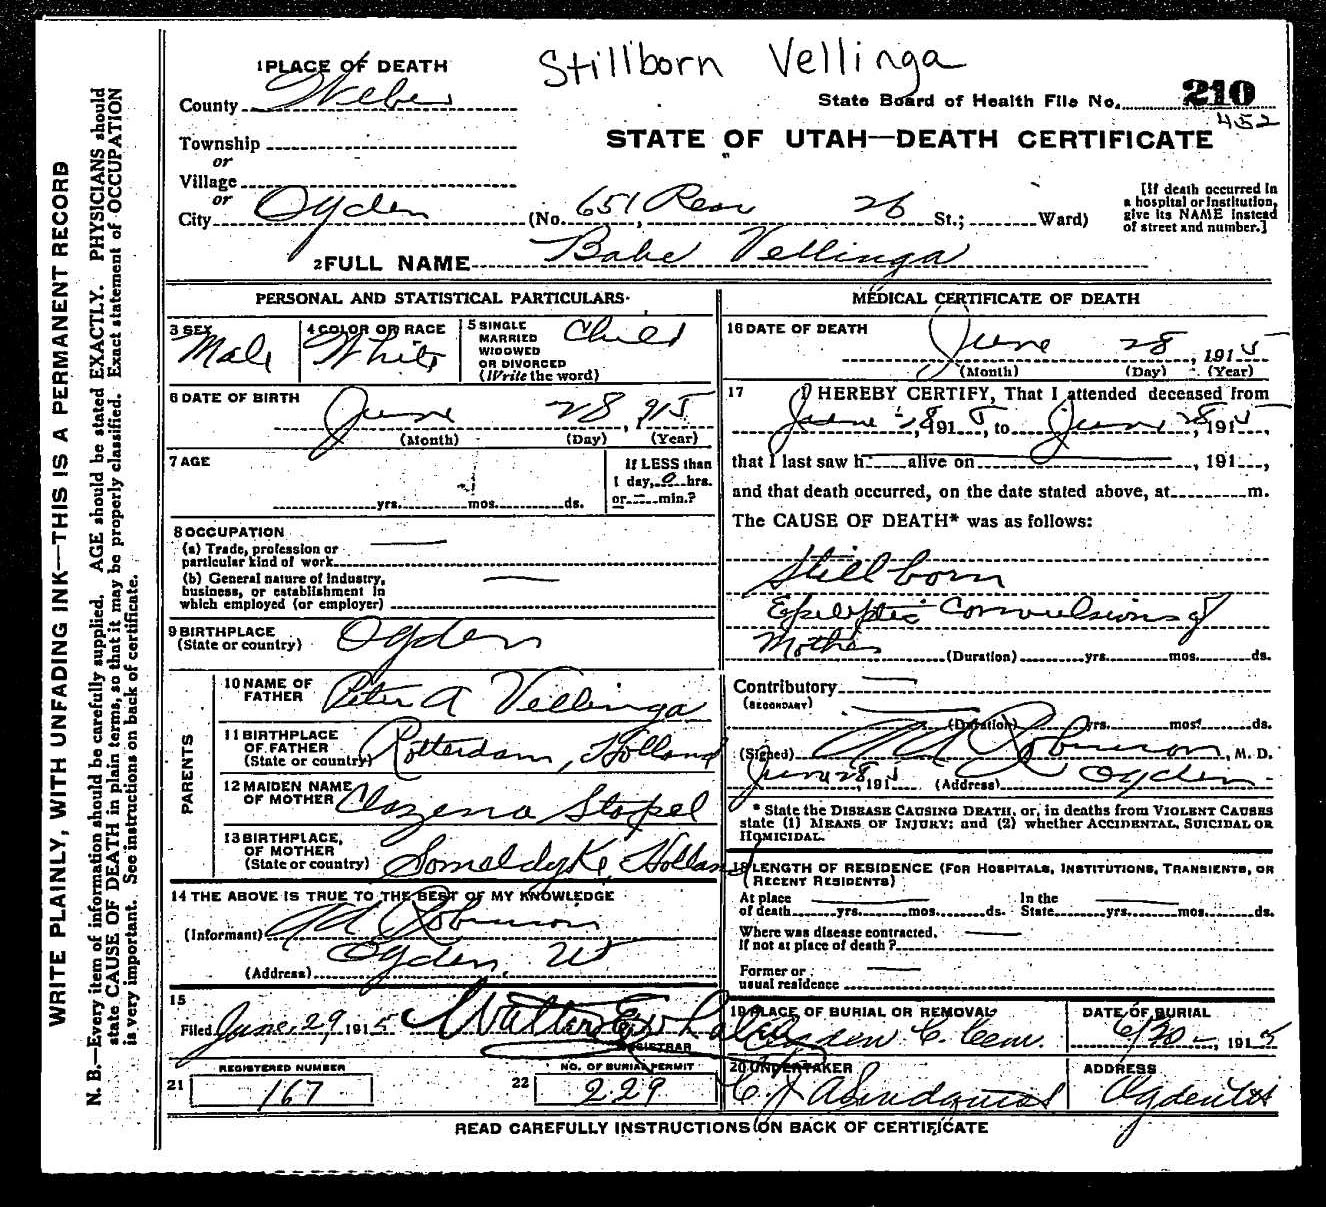 Stillborn Vellinga
1 PLACE OF DEATH
County Weber
State Board of Health File No. 210
452
Township
or
Village
or
City Ogden
STATE OF UTAH—DEATH CERTIFICATE
(No. 651 Rear 26 St.; Ward)
[If death occurred in
a hospital or institution,
give its NAME instead
of street and number.]
2 FULL NAME Babe Vellinga
PERSONAL AND STATISTICAL PARTICULARS
3 SEX Male
4 COLOR OR RACE White
5 SINGLE
MARRIED
WIDOWED
OR DIVORCED
(Write the word)
Child
6 DATE OF BIRTH June 28, 915
(Month) (Day) (Year)
7 AGE
yrs. mos. ds.
If LESS than
1 day, 0 hrs.
or — min.?
8 OCCUPATION
(a) Trade, profession or
particular kind of work
(b) General nature of industry,
business, or establishment in
which employed (or employer)
9 BIRTHPLACE
(State or country) Ogden
PARENTS
10 NAME OF
FATHER Peter A Vellinga
11 BIRTHPLACE
OF FATHER
(State or country) Rotterdam, Holland
12 MAIDEN NAME
OF MOTHER Clazena Stoppel
13 BIRTHPLACE,
OF MOTHER
(State or country) Someldyke, Holland
14 THE ABOVE IS TRUE TO THE BEST OF MY KNOWLEDGE
(Informant) Robinson
(Address) Ogden Ut
15
Filed June 29 1915 Walter E Whalen
REGISTRAR
REGISTERED NUMBER
21 167
NO. OF BURIAL PERMIT
22 229
MEDICAL CERTIFICATE OF DEATH
16 DATE OF DEATH
June 28, 1915
(Month) (Day) (Year)
17 I HEREBY CERTIFY, That I attended deceased from
June 28, 1915, to June 28, 1915,
that I last saw h alive on , 191 ,
and that death occurred, on the date stated above, at m.
The CAUSE OF DEATH* was as follows:
Stillborn
Epileptic Convulsions of
Mother
(Duration) yrs. mos. ds.
Contributory
(SECONDARY)
(Duration) yrs. mos. ds.
(Signed) Robinson, M. D.
June 28, 1915 (Address) Ogden
* State the DISEASE CAUSING DEATH, or, in deaths from VIOLENT CAUSES
state (1) MEANS OF INJURY; and (2) whether ACCIDENTAL, SUICIDAL OR
HOMICIDAL.
18 LENGTH OF RESIDENCE (FOR HOSPITALS, INSTITUTIONS, TRANSIENTS, OR
RECENT RESIDENTS)
At place
of death yrs. mos. ds.
In the
State yrs. mos. ds.
Where was disease contracted,
If not at place of death?
Former or
usual residence
19 PLACE OF BURIAL OR REMOVAL
Ogden C. Cem.
DATE OF BURIAL
6/30, 1915
20 UNDERTAKER
C. J. A. Lindquist
ADDRESS
Ogden Ut
READ CAREFULLY INSTRUCTIONS ON BACK OF CERTIFICATE
WRITE PLAINLY, WITH UNFADING INK—THIS IS A PERMANENT RECORD
N. B.—Every item of information should be carefully supplied. AGE should be stated EXACTLY. PHYSICIANS should
state CAUSE OF DEATH in plain terms, so that it may be properly classified. Exact statement of OCCUPATION
is very important. See instructions on back of certificate.